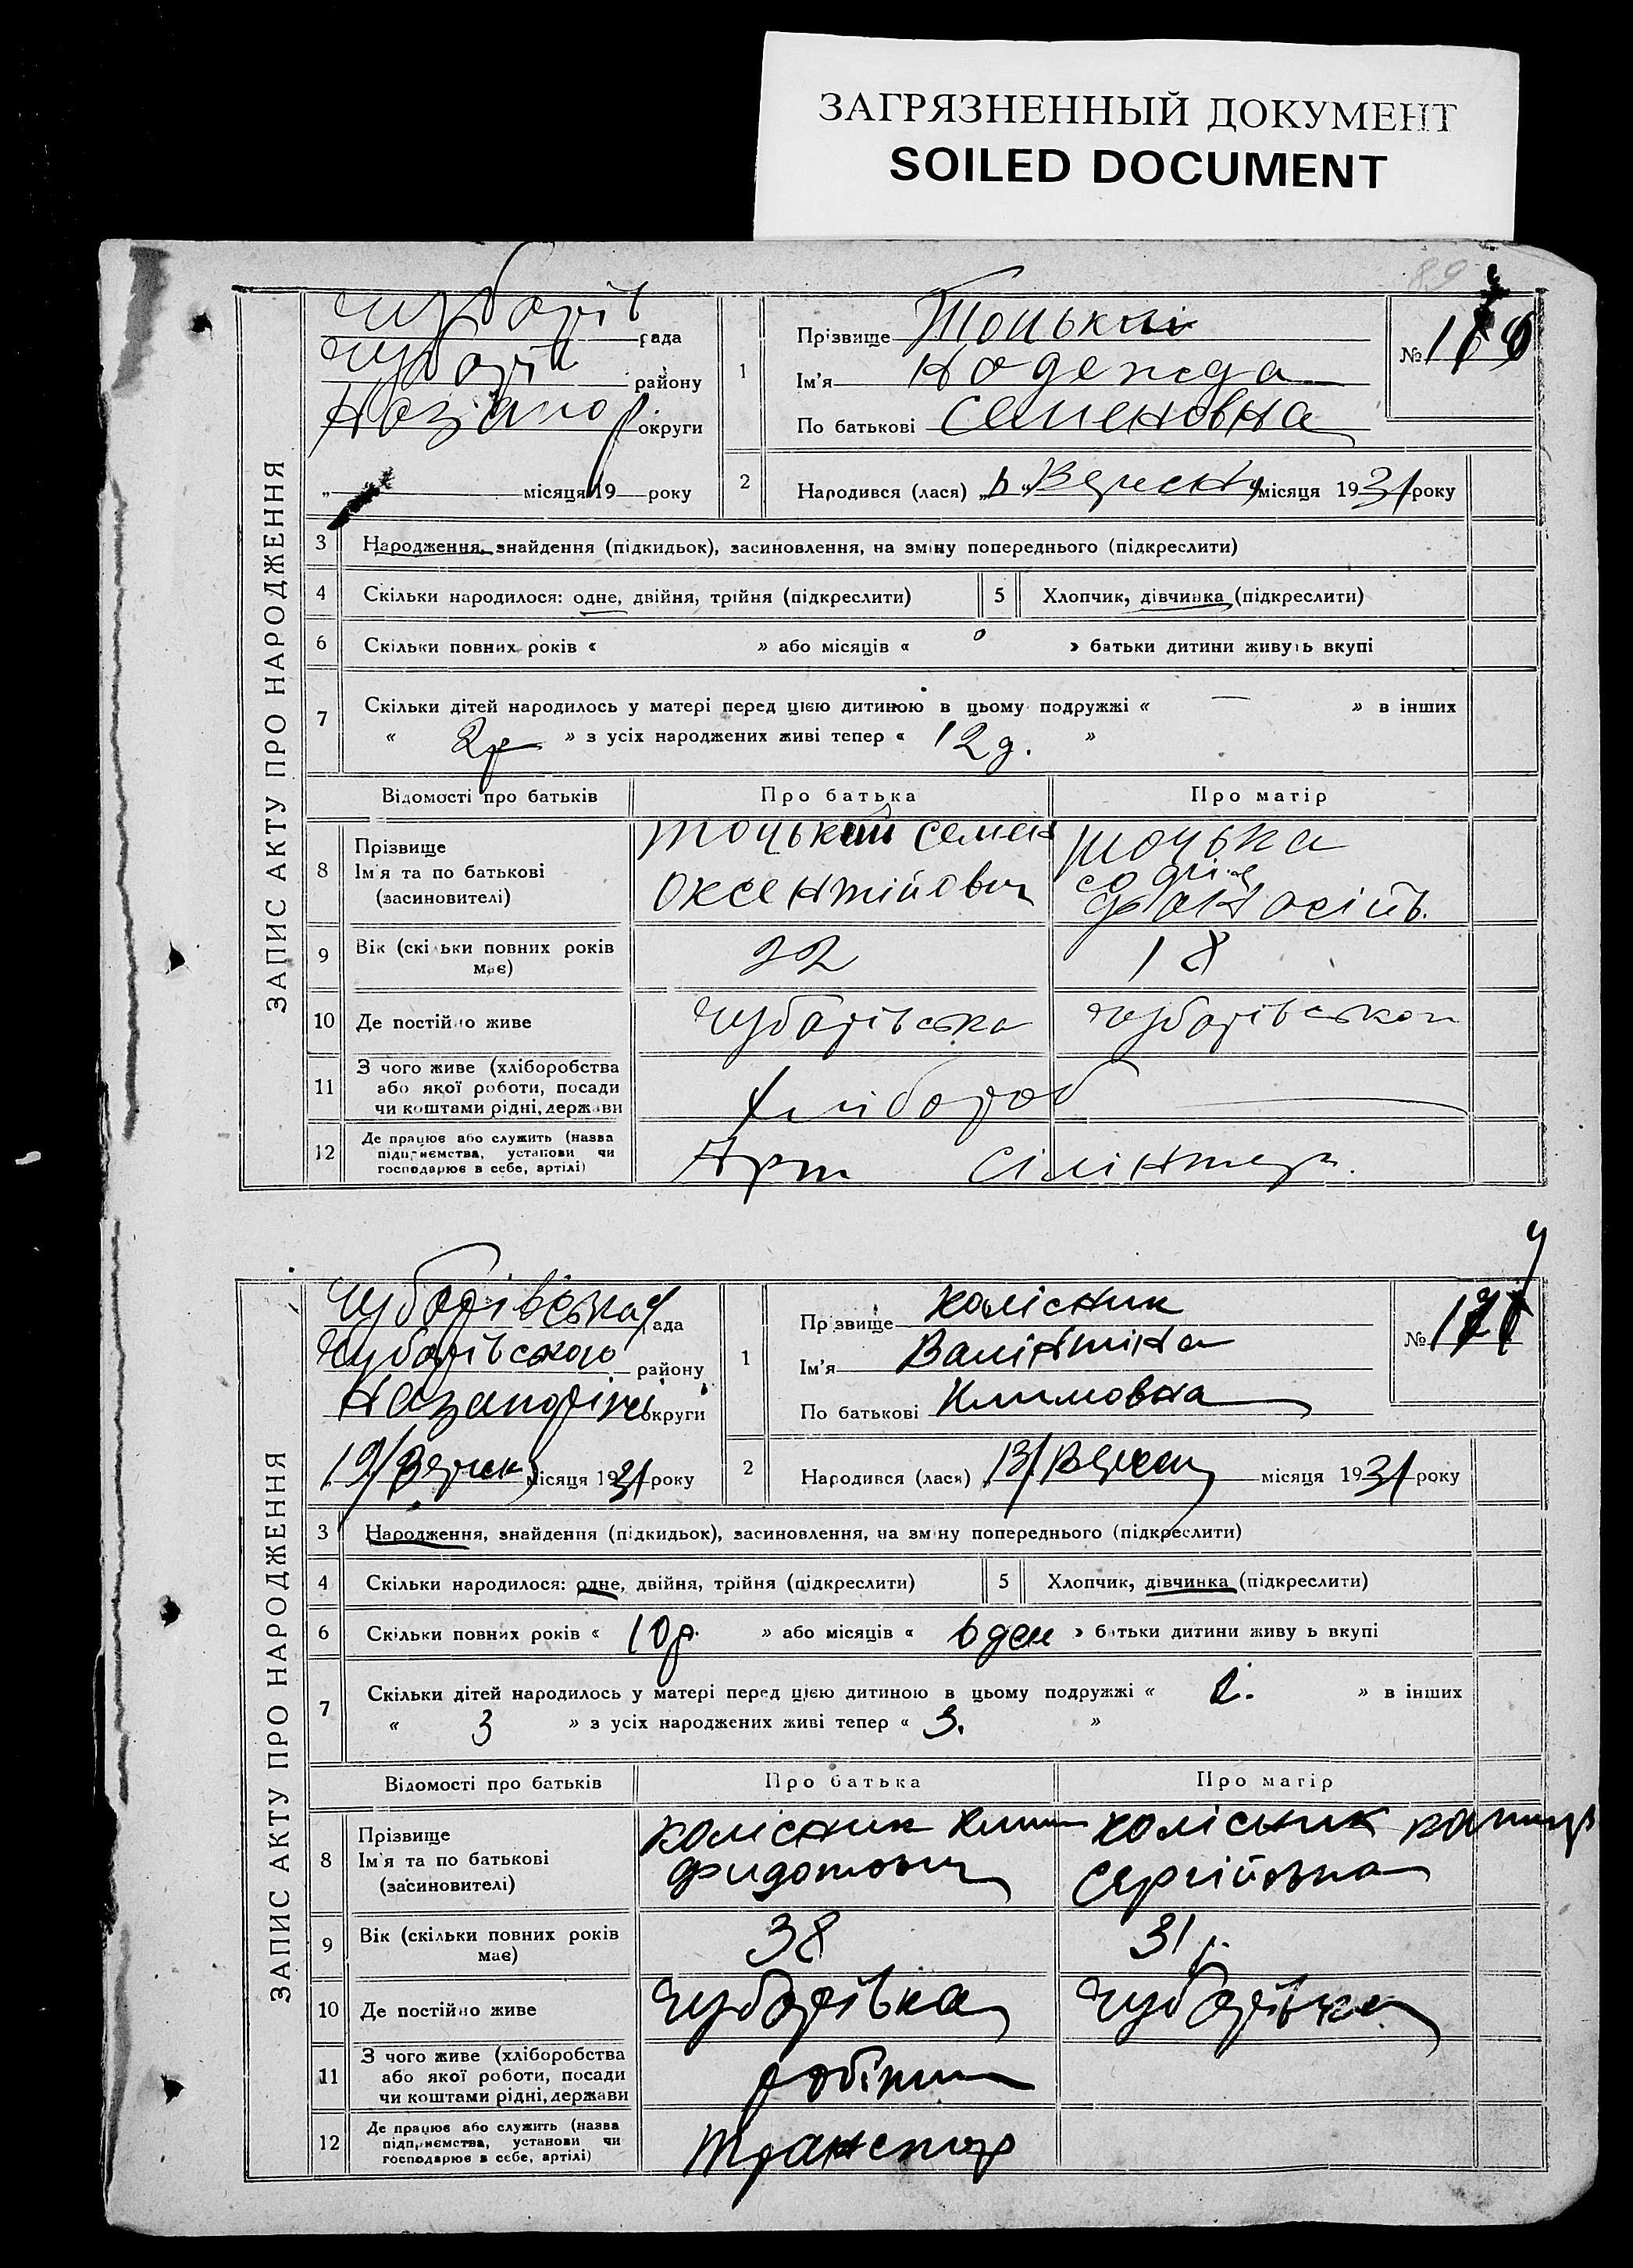 ЗАГРЯЗНЕННЫЙ ДОКУМЕНТ
SOILED DOCUMENT
89
ЗАПИС АКТУ ПРО НАРОДЖЕННЯ
Чубарів рада
Чубарів району
округи
„ місяця 19 року
1
Прізвище Тоцькиі
Ім'я Надежда
По батькові Семеновна
№
2
Народився (лася) „6“ Вересня місяця 1931 року
3 Народження, знайдення (підкидьок), засиновлення, на зміну попереднього (підкреслити)
4 Скільки народилося: одне, двійня, трійня (підкреслити) 5 Хлопчик, дівчинка (підкреслити)
6 Скільки повних років « » або місяців « » батьки дитини живуть вкупі
7 Скільки дітей народилось у матері перед цією дитиною в цьому подружжі « — » в інших
« 2р » з усіх народжених живі тепер « 12д. »
Відомості про батьків Про батька Про матір
8 Прізвище Ім'я та по батькові (засиновителі)
Тоцький Семен
Оксентійович
Тоцька
Софія
9 Вік (скільки повних років має) 22 18
10 Де постійно живе Чубарівська Чубарівськои
11 З чого живе (хліборобства або якої роботи, посади чи коштами рідні, держави Хлібороб
12 Де працює або служить (назва підприємства, установи чи господарює в себе, артілі) Арт
ЗАПИС АКТУ ПРО НАРОДЖЕННЯ
Чубарівська рада
Чубарівського району
округи
19/Вересня місяця 1931 року
1
Прізвище Колісник
Ім'я Валінтіна
По батькові Климовна
№
2
Народився (лася) „13/Вересня місяця 1931 року
3 Народження, знайдення (підкидьок), засиновлення, на зміну попереднього (підкреслити)
4 Скільки народилося: одне, двійня, трійня (підкреслити) 5 Хлопчик, дівчинка (підкреслити)
6 Скільки повних років « 10р. » або місяців « » батьки дитини живуть вкупі
7 Скільки дітей народилось у матері перед цією дитиною в цьому подружжі « » в інших
« 3 » з усіх народжених живі тепер « 3. »
Відомості про батьків Про батька Про матір
8 Прізвище Ім'я та по батькові (засиновителі)
Колісник Клим
Фидотович
Колісник
Сергійовна
9 Вік (скільки повних років має) 38 31 р.
10 Де постійно живе Чубарівка Чубарівка
11 З чого живе (хліборобства або якої роботи, посади чи коштами рідні, держави робітник
12 Де працює або служить (назва підприємства, установи чи господарює в себе, артілі) Транспор